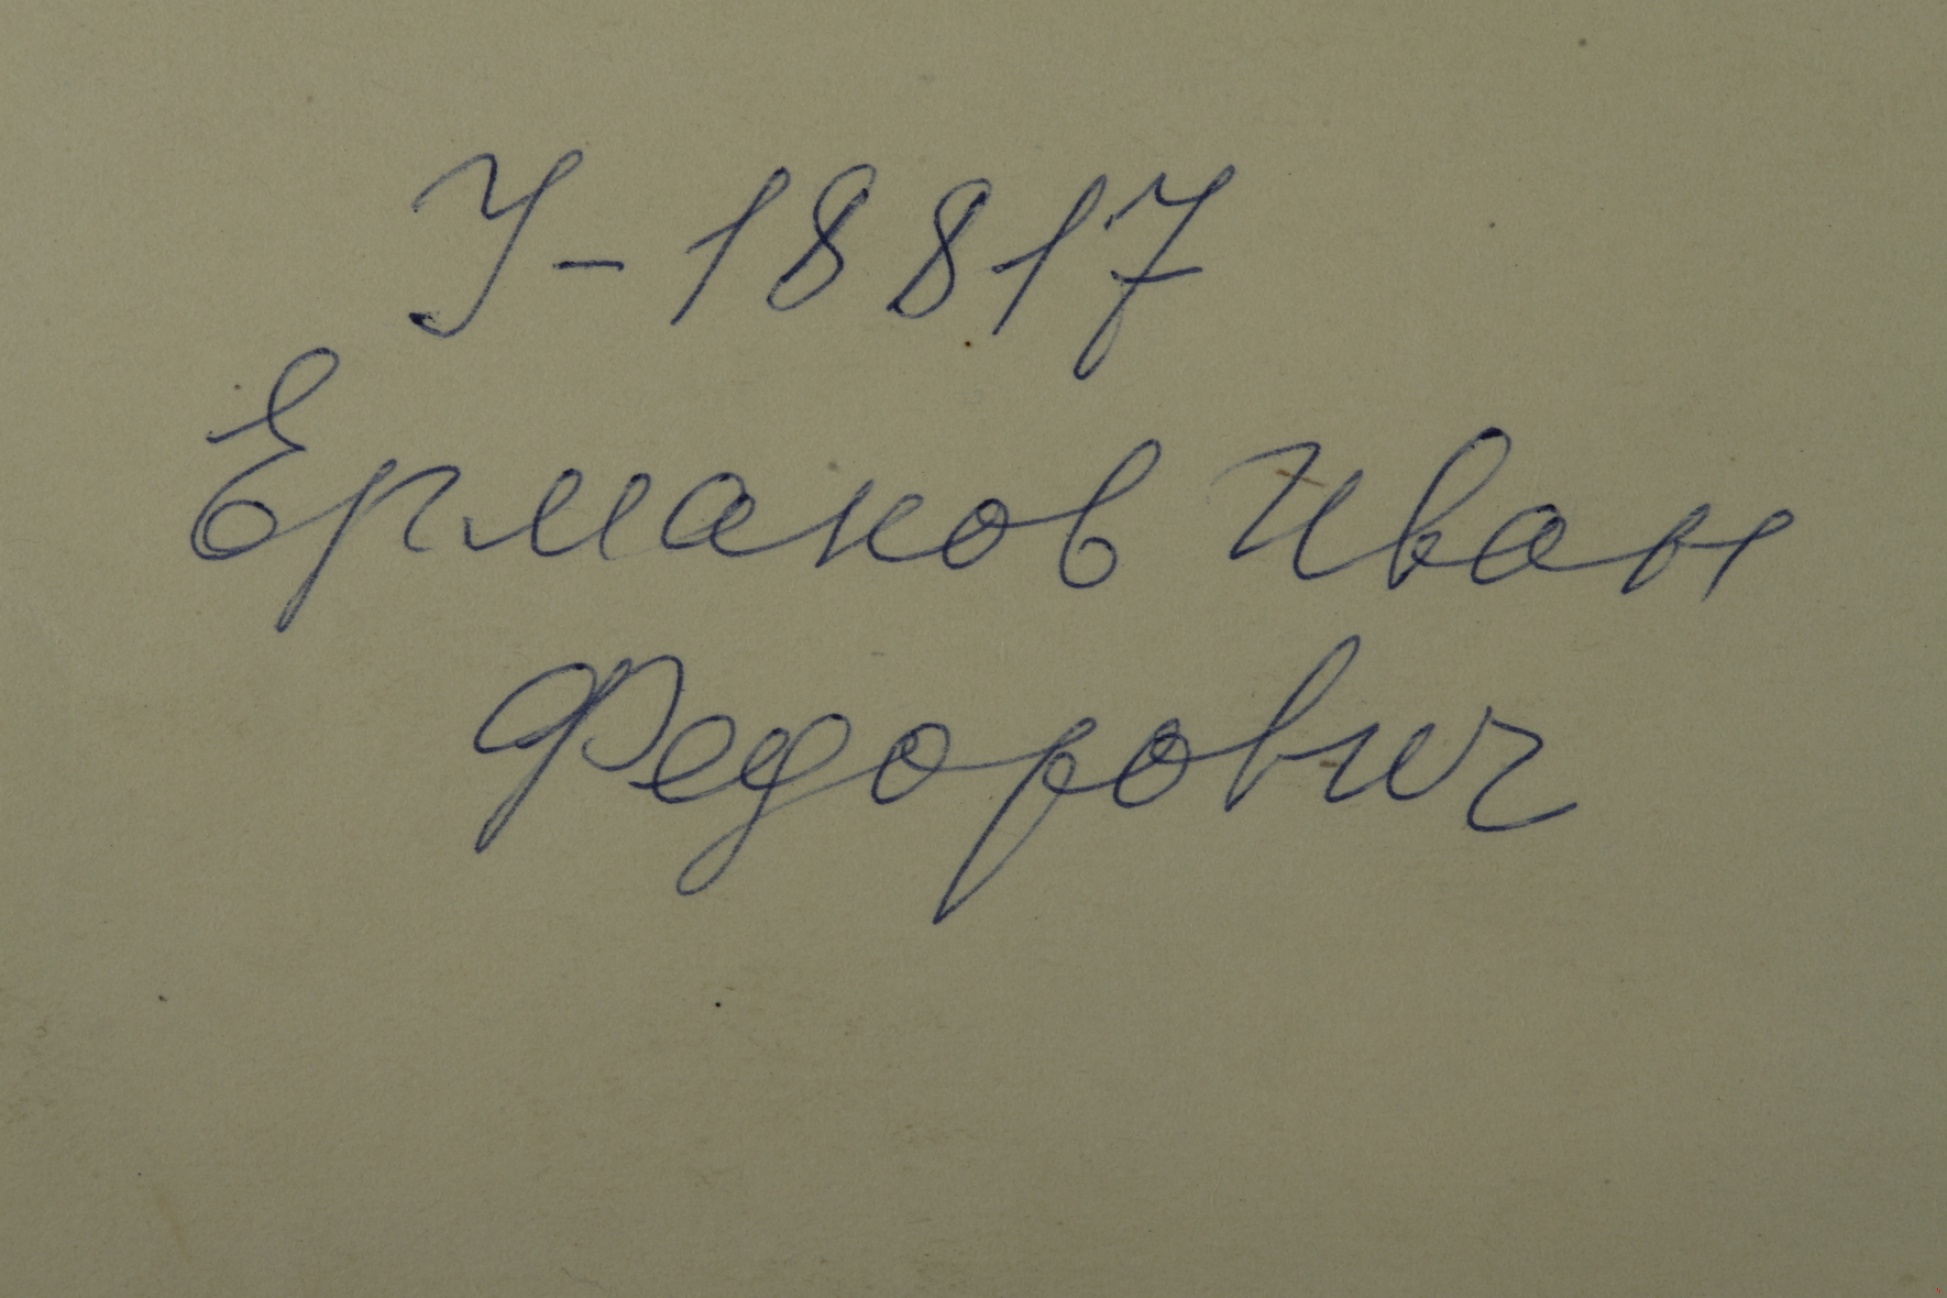 У-18817
Ермаков Иван
Федорович